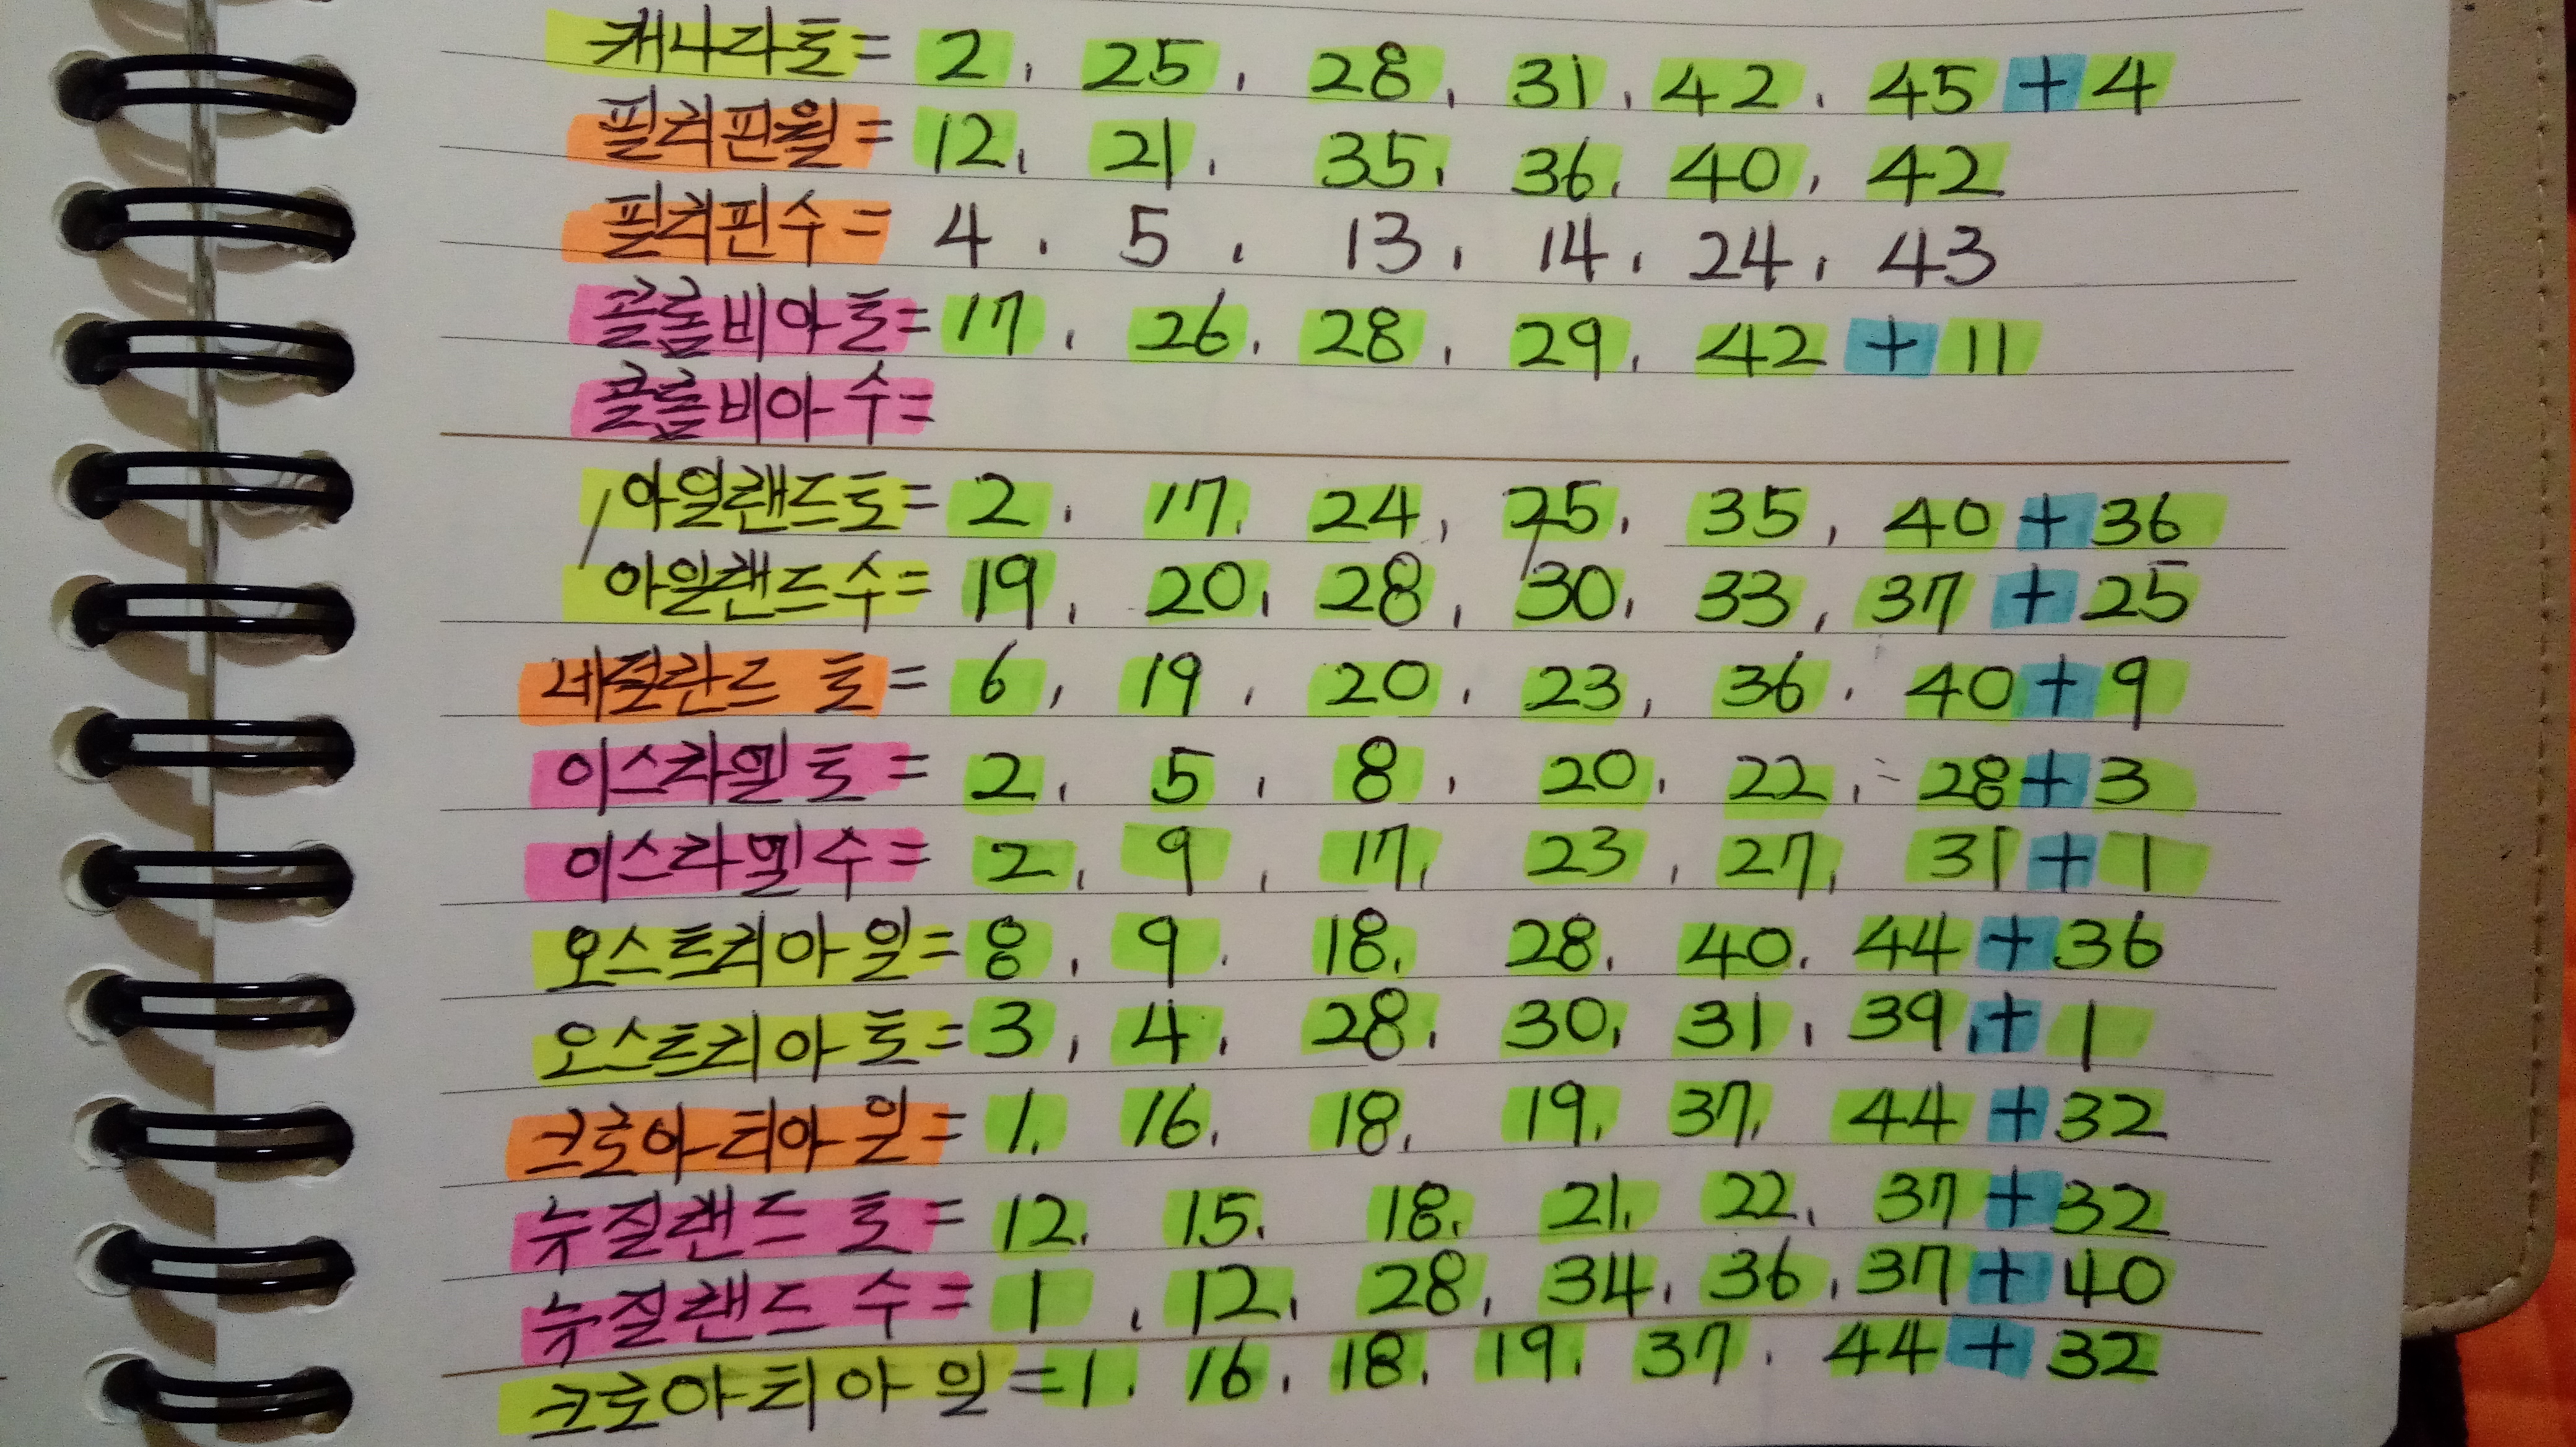 캐나다토= 2, 25, 28, 31, 42, 45 + 4
필리핀월= 12, 21, 35, 36, 40, 42
필리핀수= 4, 5, 13, 14, 24, 43
콜롬비아토= 17, 26, 28, 29, 42 + 11
콜롬비아수=
아일랜드토= 2, 17, 24, 25, 35, 40 + 36
아일랜드수= 19, 20, 28, 30, 33, 37 + 25
네덜란드 토= 6, 19, 20, 23, 36, 40 + 9
이스라엘 토= 2, 5, 8, 20, 22, 28 + 3
이스라엘수= 2, 9, 17, 23, 27, 31 + 1
오스트리아 일= 8, 9, 18, 28, 40, 44 + 36
오스트리아 토= 3, 4, 28, 30, 31, 39, + 1
크로아티아 일= 1, 16, 18, 19, 37, 44 + 32
뉴질랜드 토= 12, 15, 18, 21, 22, 37 + 32
뉴질랜드 수= 1, 12, 28, 34, 36, 37 + 40
크로아티아 일= 1, 16, 18, 19, 37, 44 + 32